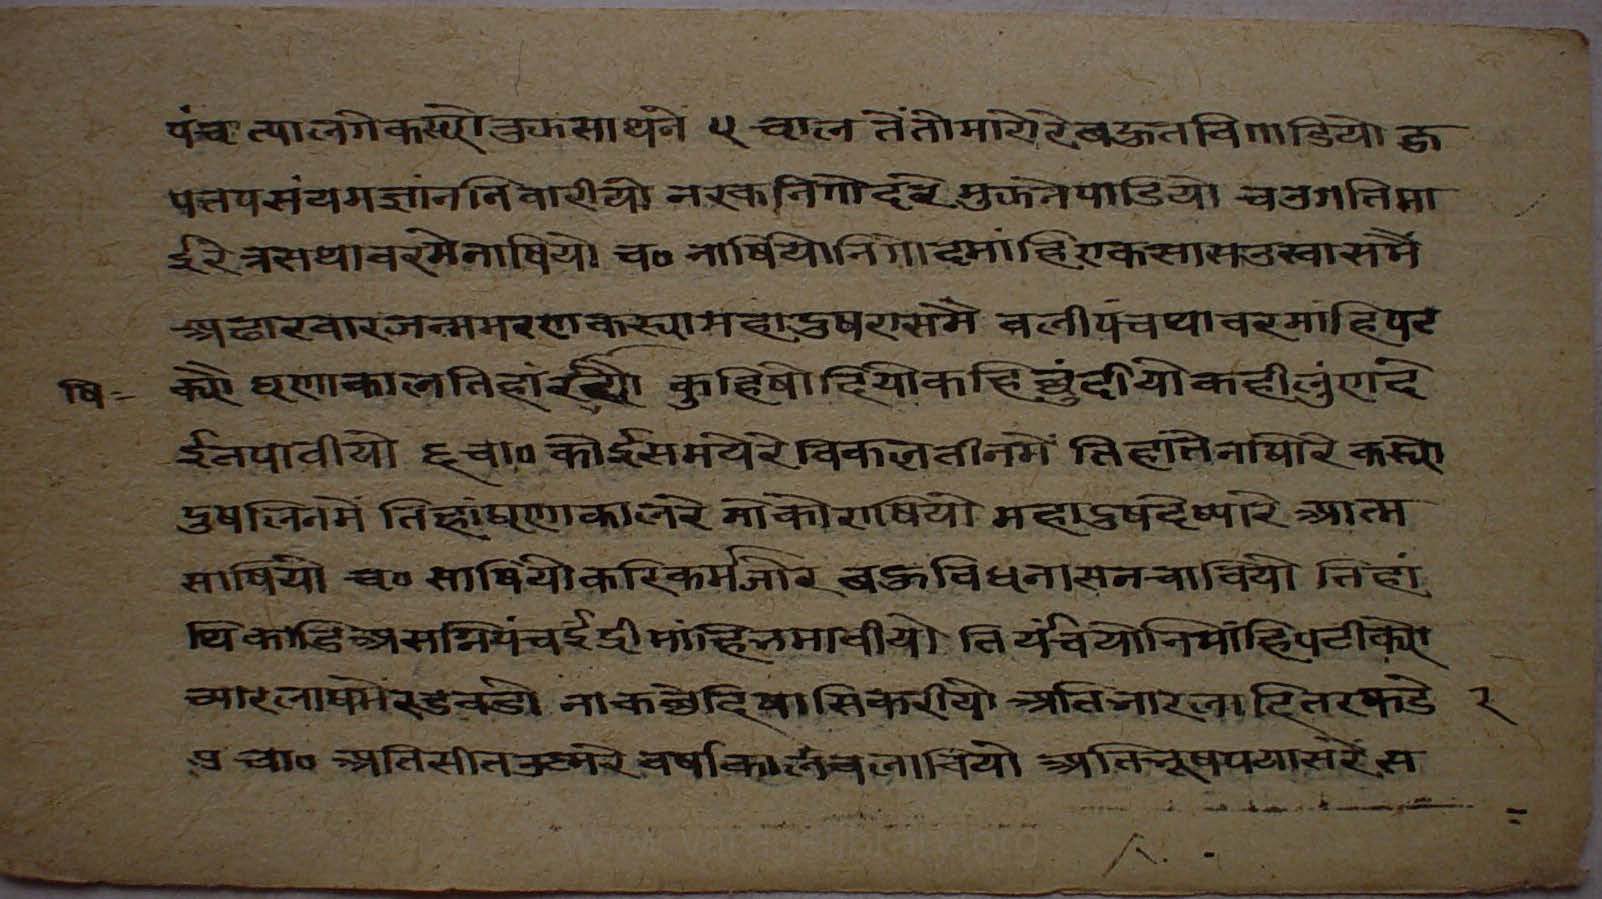 पंच त्यालगेकस्यो तुऊसाथने ५ चाल तेंतोमारोरे बऊतविगाडियो ऊ
पत्तपसंयमज्ञांननिवारीयो नरकनिगोदरे मुऊनेपाडियो चउगतिमा
ईरे त्रसथावरमेनाषियो च० नाषियोनिगोदमांहि एकसासउस्वासमैं
अढारवारजन्ममरणकस्या महादुषरासमैं वलीपंचथावरमांहिपट
षि= क्यौ घणाकालतिहांरह्यौ कुहिषोदियोकहिछुंदीयोकहीलुंणदे
ईतपावीयो ६ चा० कोईसमयेरे विकलतीनमें तिहांतेनाषोरे कस्यो
दुषलिनमें तिहांघणाकालरे मोकोराषियो महादुषदेष्यारे आत्म
साषियो च० साषियोकरिकर्मजोर बऊविधनासनचावियो तिहां
थिकाढि असन्निपंचईद्रीमांहिलमावीयो तिर्यंचयोनिमांहिपटीक्यो
च्यारलाषमेरडवडो नाकछेदि षासिकरीयो अतिभारलादितरकडे २
७ चा० अतिसीतउष्मरे वर्षाकालचलावियो अतिभूषपयासरे स
www.jainaelibrary.org